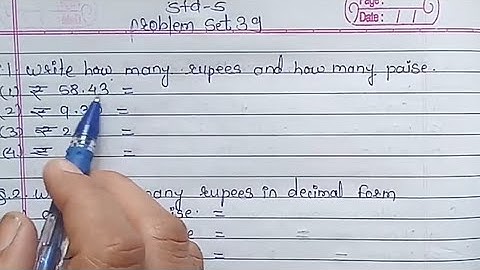 Std-5
Problem Set.39
Date: / /
1 write how many rupees and how many paise.
(1) ₹ 58.43 =
(2) ₹ 9.30 =
(3) ₹ 2 =
(4) ₹ =
Q.2 w many rupees in decimal form
paise. =
=
=